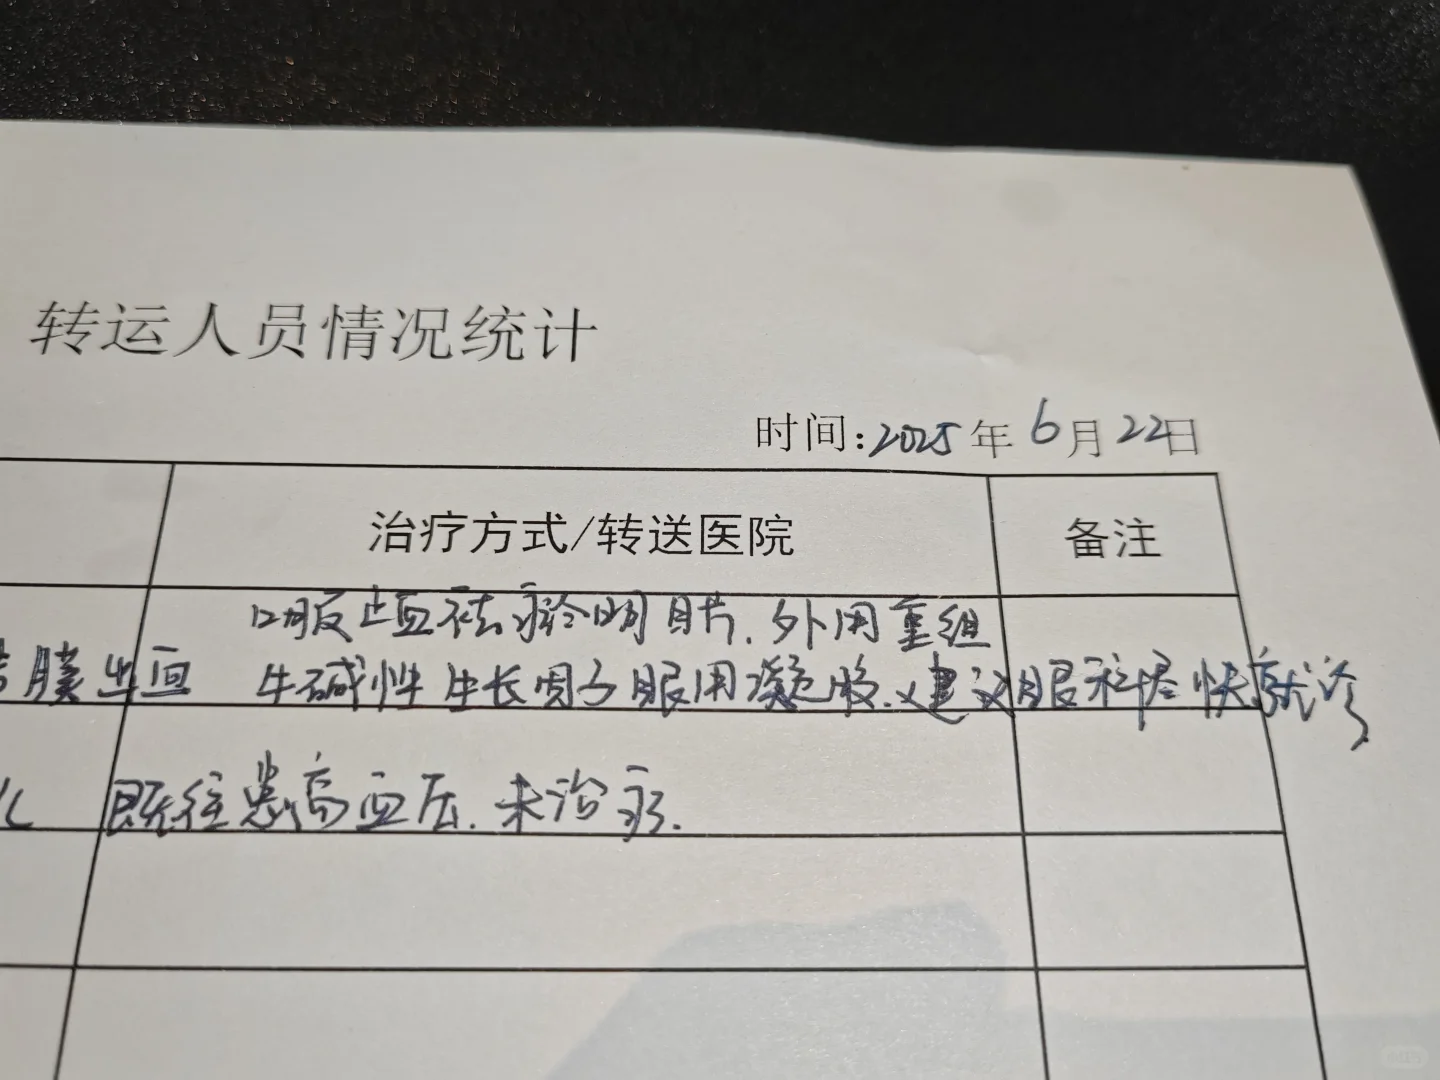 转运人员情况统计
时间:2025年6月22日
治疗方式/转送医院
备注
口服止血祛瘀明目片.外用重组
结膜出血 牛碱性生长因子眼用凝胶.建议眼科尽快就诊
既往患高血压.未治疗.